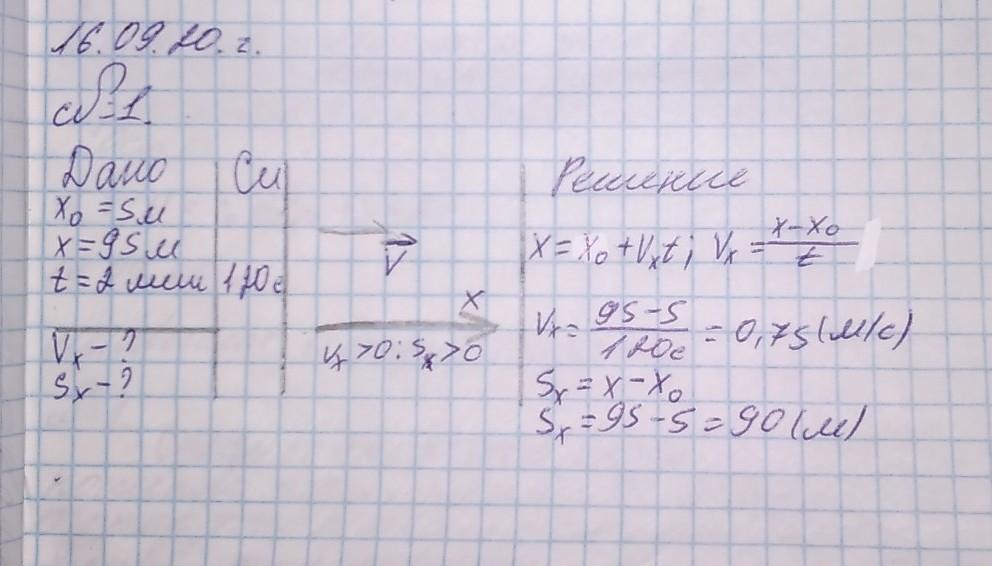 16.09.20.г.
№1.
Дано Си
x₀ = 5м
x = 95м
t = 2 мин 120с
Vₓ - ?
Sₓ - ?
V
x
vₓ > 0; sₓ > 0
Решение
x = x₀ + Vₓt; Vₓ = (x - x₀)/t
Vₓ = (95 - 5)/120с = 0,75 (м/с)
Sₓ = x - x₀
Sₓ = 95 - 5 = 90 (м)